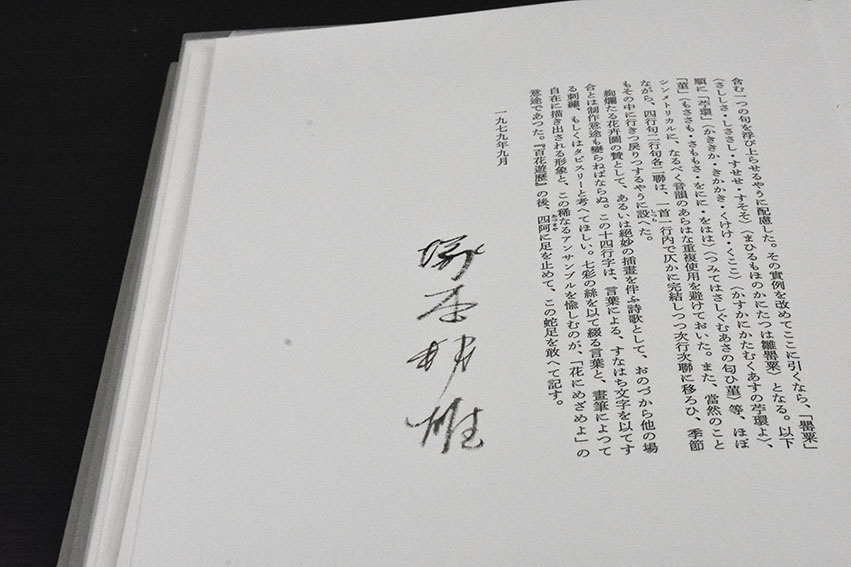 含む一つの句を浮び上らせるやうに配慮した。その實例を改めてここに引くなら、「罌粟」
〈さしさ・しさし・すせせ・すそそ〉〈まひるもほのかにたつは雛罌粟〉となる。以下
順に「苧環」〈かききか・きかかき・くけけ・くここ〉〈かすかにかたむくあすの苧環よ〉、
「菫」〈もささも・さももさ・をにに・をはは〉〈つみてはさしぐむあさの匂ひ菫〉等、ほぼ
シンメトリカルに、なるべく音韻のあらはな重複使用を避けておいた。また、當然のこと
ながら、四行句二行句各二聯は、一首一行内で仄かに完結しつつ次行次聯に移ろひ、季節
もその中に行きつ戻りつするやうに設へた。
絢爛たる花卉圖の贊として、あるいは絕妙の插畫を伴ふ詩歌として、おのづから他の場
合とは制作意途も變らねばならぬ。この十四行字は、言葉による、すなはち文字を以てす
る刺繡、もしくはタピスリーと考へてほしい。七彩の絲を以て綴る言葉と、畫筆によつて
自在に描き出される形象と、この稀なるアンサンブルを愉しむのが、「花にめざめよ」の
意途であつた。『百花遊歷』の後、四阿に足を止めて、この蛇足を敢へて記す。
一九七九年九月
塚本邦雄